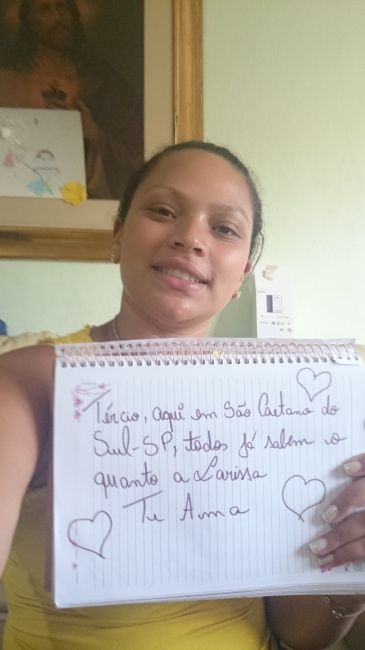 Tércio, aqui em São Caetano do
Sul-SP, todos já sabem o
quanto a Larissa
Te Ama